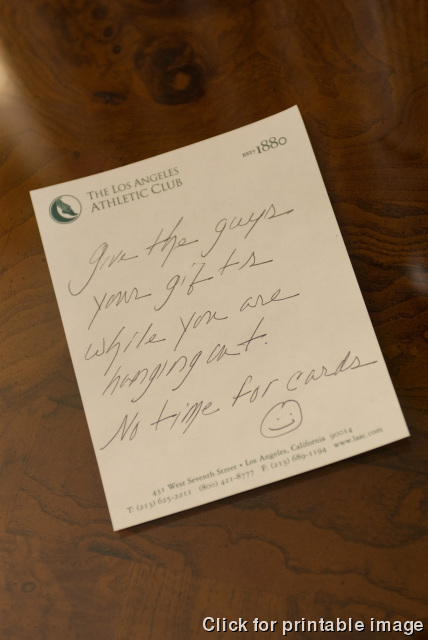 THE LOS ANGELES
ATHLETIC CLUB
ESTD 1880
Give the guys
your gifts
while you are
hanging out.
No time for cards
431 West Seventh Street • Los Angeles, California 90014
T: (213) 625-2211 (800) 421-8777 F: (213) 689-1194 www.laac.com
Click for printable image